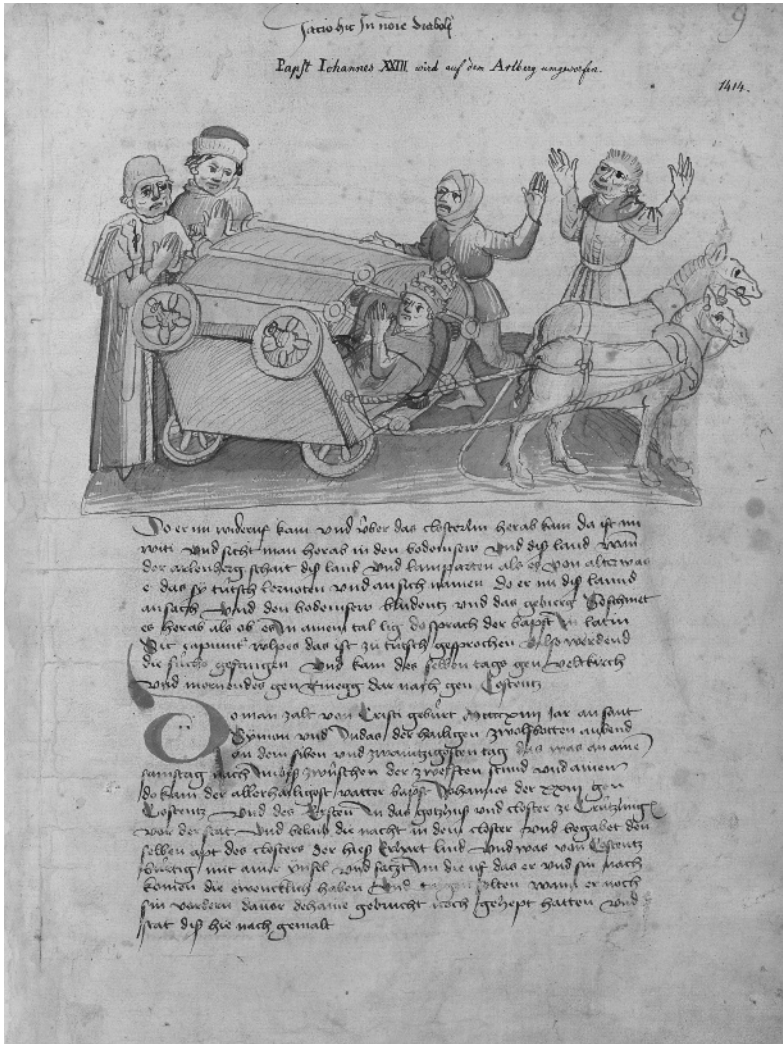 Jaceo hic in noie diaboli
9
Papst Iohannes XXIII wird auf dem Arlberg umgeworfen.
1414.
Do er nu wideruf kam und über das clösterlin herab kam da ist nu
witi und sicht man herab in den bodensew und diß land wan
der arlenberg schait diß land und lamparten als es von alter was
e das sy tütsch lernoten und an sich namen do er nu diß lannd
ansach und den bodensew bludentz und das gebierg Do schinet
es herab als ob es in ainem tal lig do sprach der bapst in latin
Sic capiuntur wlpes das ist zu tütsch gesprochen also werdend
die füchs gefangen und kam des selben tags gen veltkirch
und mornendes gen Rinegg dar nach gen Costentz
Do man zalt von Cristi geburt Mccccxiiii jar an sant
Symon und Judas der hailigen zwölfbotten aubend
an dem siben und zwaintzigosten tag das was an aim
samstag nach imbiss zwüschen der zwelften stund und ainen
do kam der allerhailigost vatter bapst Johannes der xxiii gen
Costentz und des Ersten in das gotzhus und closter ze Crützling
vor der stat und belaib die nacht in dem closter und begabet den
selben apt des closters der hieß Erhart lind und was von Costentz
bürtig mit ainer ynfel und satzt im die uf das er und sin nach
komen die ewencklich haben und solten wann er noch
sin vordern davor dehaine gebrucht noch gehept hatten und
stat diß hie nach gemalt